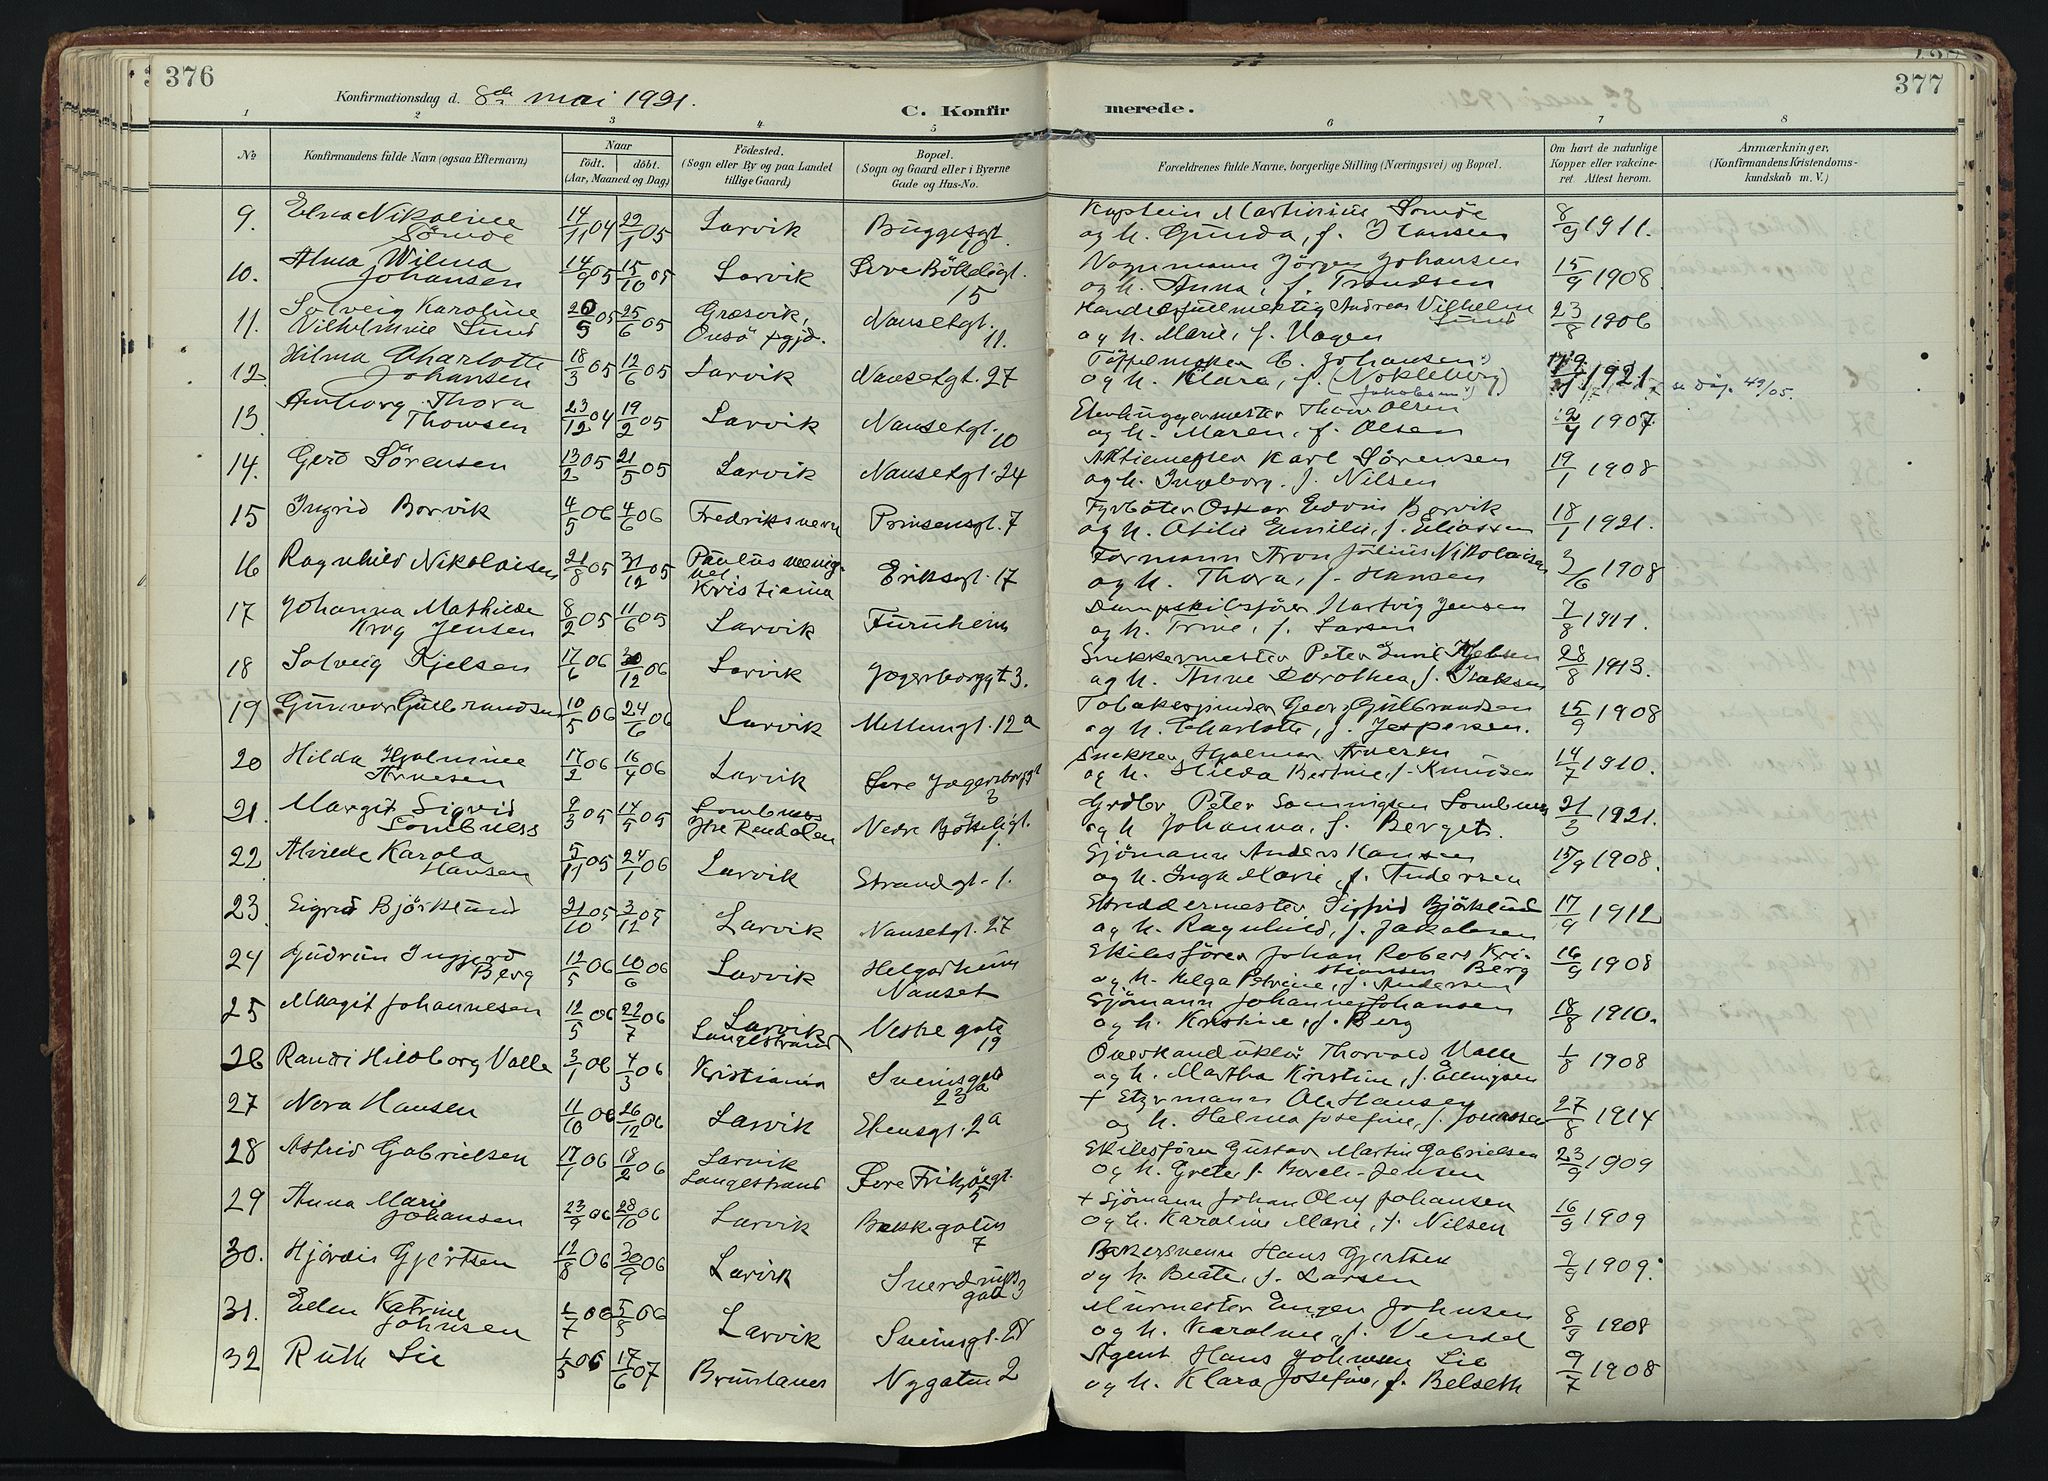 376
Konfirmationsdag d. 8de mai 1921.
C. Konfirmerede.
377
1 2 3 4 5 6 7 8
No
Konfirmandens fulde Navn (ogsaa Efternavn)
Naar
födt. döbt.
(Aar, Maaned og Dag)
Födested.
(Sogn eller By og paa Landet
tillige Gaard)
Bopæl.
(Sogn og Gaard eller i Byerne
Gade og Hus-No.
Forældrenes fulde Navne, borgerlige Stilling (Næringsvei) og Bopæl.
Om havt de naturlige
Kopper eller vakcine-
ret. Attest herom.
Anmærkninger,
(Konfirmandens Kristendoms-
kundskab m. V.)
9. Elna Nikoline Sömöe 14/11 04 22/1 05 Larvik Buggesgt. Kaptein Martinius Sömöe
og h. Gunda, f. Hansen 8/9 1911.
10. Alma Wilma Johansen 14/9 05 15/10 05 Larvik Övre Bökkeligt. 15 Vognmann Jörgen Johansen
og h. Anna, f. Trondsen 15/9 1908
11. Solveig Karoline Vilhelmine Lund 20/5 05 25/6 05 Græsvik, Onsö Nansetgt. 11. Handelsfulmektig Andreas Vilhelm Lund
og h. Marie, f. Hagen 23/8 1906
12. Hilma Charlotte Johansen 18/3 05 12/6 05 Larvik Nansetgt. 27 Töffelmaker C. Johansen
og h. Klara, f. (Nökleberg) (Jakobsen) 1921 se dåp. 49/05.
13. Amborg Thora Thowsen 23/12 04 19/2 05 Larvik Nansetgt. 10 Thow Olsen
og h. Maren, f. Olsen 1907
14. Gerd Sörensen 13/2 05 21/5 05 Larvik Nansetgt. 24 Karl Sörensen
og h. Ingeborg, f. Nilsen 19/1 1908
15 Ingrid Borvik 4/5 06 4/6 06 Fredriksvern Prinsensgt. 7 Fyrböter Oskar Edvin Borvik
og h. Otilie Emilie, f. Eliassen 18/1 1921.
16 Ragnhild Nikolaisen 21/8 05 31/12 05 Paulus menighet Kristiania Eriksgt. 17 Formann Aron Julius Nikolaisen
og h. Thora, f. Hansen 3/6 1908
17 Johanna Mathilde Krog Jensen 8/2 05 11/6 05 Larvik Furuheim Dampskibsförer Hartvig Jensen
og h. Trine, f. Larsen 7/8 1911.
18 Solveig Kjelsen 17/6 06 30/12 06 Larvik Jegersborggt 3. Snekkermester Peter Emil Kjelsen
og h. Anne Dorothea, f. Isaksen 28/8 1913.
19 Gunvor Gulbrandsen 10/5 06 24/6 06 Larvik Mellumgt. 12a Tobakspinder Georg Gulbrandsen
og h. Charlotte, f. Jespersen. 15/9 1908
20 Hilda Hjalmine Arnesen 17/2 06 16/4 06 Larvik Övre Jegersborggt 3 Snekker Hjalmar Arnesen
og h. Hilda Bertine, f. Knudsen 14/7 1910.
21. Margit Sigrid Lombnæss 9/3 05 14/5 05 Lombnæss Ytre Rendalen Nedre Bökkeligt. 1. Grdbr. Peter Lombnæss
og h Johanna, f. Berget. 21/3 1921.
22. Alvilde Karola Hansen 5/11 05 24/1 06 Larvik Strandgt. 1. Sjömann Anders Hansen
og h. Inga Marie, f. Andersen 15/9 1908.
23. Sigrid Björklund 21/10 05 3/12 05 Larvik Nansetgt. 27 Skreddermester Sigfrid Björklund
og h. Ragnhild, f. Jakobsen 17/9 1912
24 Gudrun Ingjerd Berg 12/5 06 10/6 06 Larvik Helgarheim Nanset Skibsförer Johan Robert Kristiansen Berg
og h. Helga Petrine, f. Andersen 16/9 1908
25 Margit Johannesen 12/5 06 22/7 06 Larvik Langestrand Vestre gate 19 Sjömann Johannes Johansen
og h. Kristine, f. Berg 18/8 1910.
26 Randi Hildborg Valle 3/1 06 4/3 06 Kristiania Sveinsgate 23a Overkonduktör Thorvald Valle
og h. Martha Kristine, f. Ellingsen 1/8 1908
27 Nora Hansen 11/10 06 26/12 06 Larvik Ebensgt. 2a + Styrmann Ola Hansen
og h. Helma Josefine, f. Jonassen 27/8 1914
28 Astrid Gabrielsen 17/1 06 18/2 06 Larvik Langestrand Övre Fritzöegt. 5 Skibsförer Gustav Martin Gabrielsen
og h. Grete f. Borch-Jensen 23/9 1909
29 Anna Marie Johansen 23/9 06 28/10 06 Larvik Bakkegaten 7 + Sjömann Johan Oluf Johansen
og h. Karoline Marie, f. Nilsen 16/9 1909
30. Hjördis Gjertsen 12/8 06 30/9 06 Larvik Sverdrupsgate 3 Bakersvenn Hans Gjertsen
og h. Beate, f. Larsen 9/9 1909.
31. Ellen Katrine Johnsen 1/7 06 5/8 06 Larvik Sveinsgt. Murmester Eugen Johnsen
og h. Karoline, f. Vendel 8/9 1908
32 Ruth Lie 1/5 06 17/6 07 Brunlanes Nygaten 2 Agent Hans Johnsen Lie
og h. Klara Josefine, f. Belseth 9/7 1908